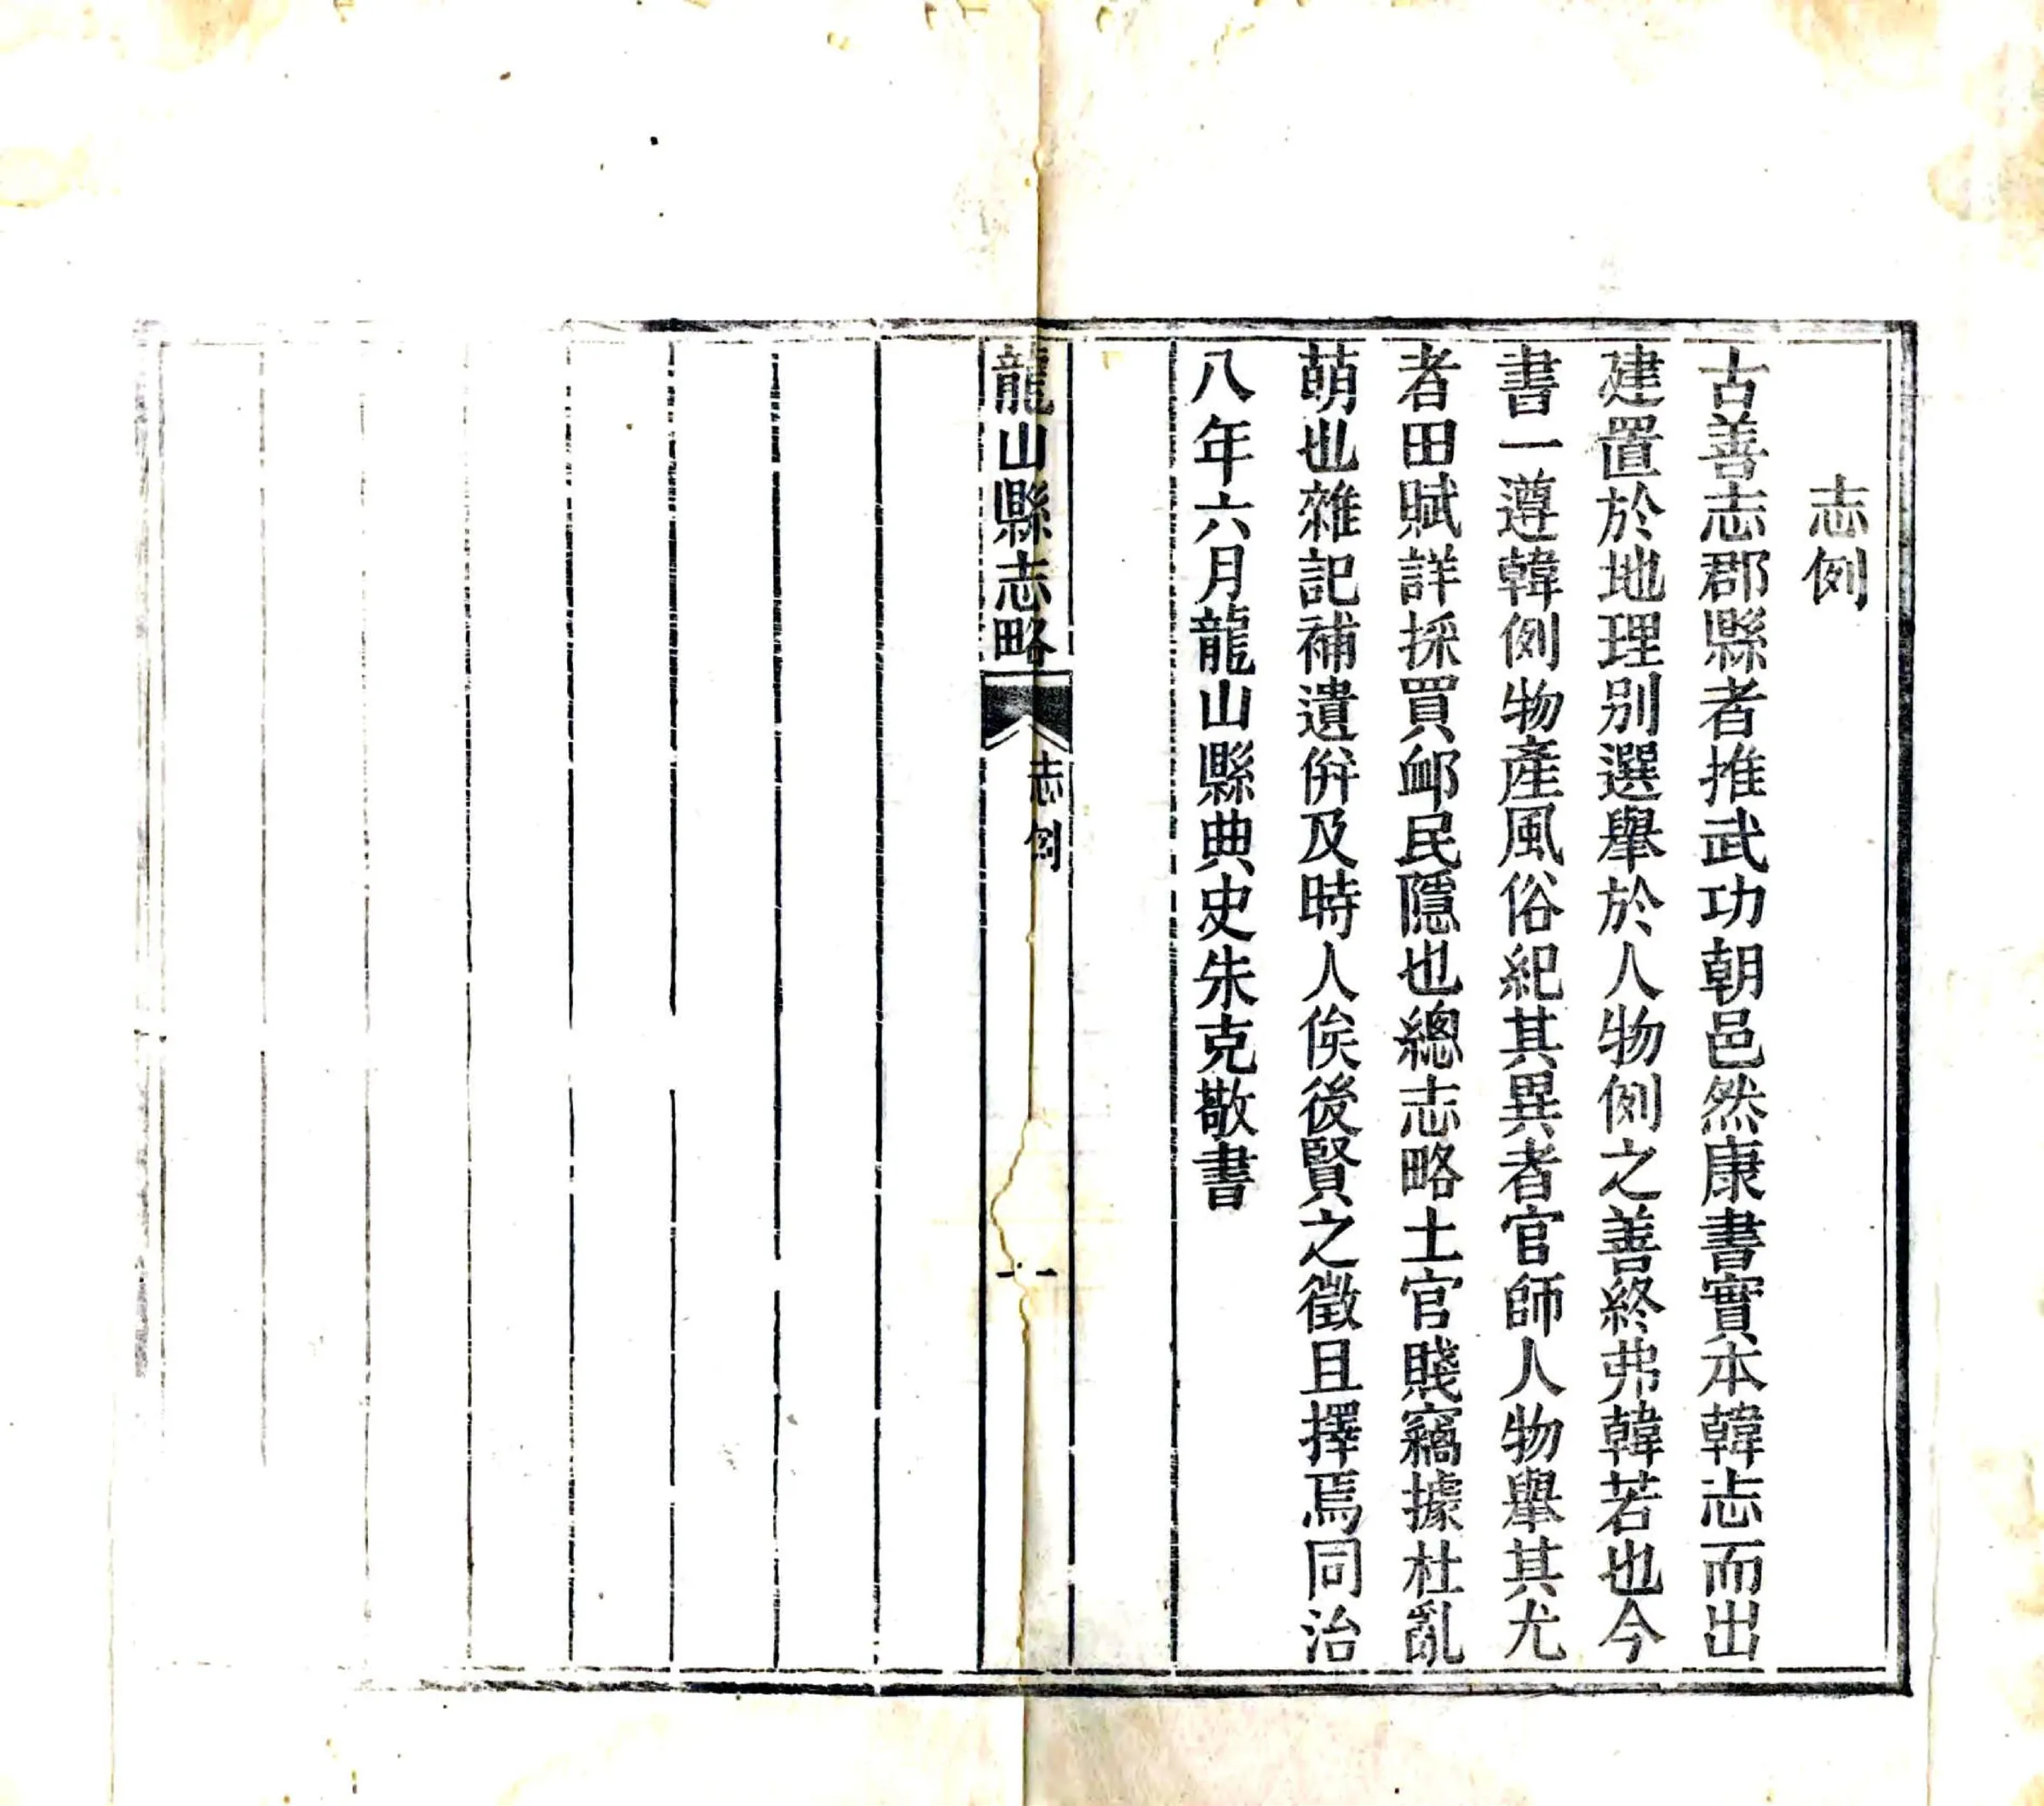 志例
古善志郡縣者推武功朝邑然康書實本韓志而出
建置於地理別選舉於人物例之善終弗韓若也今
書一遵韓例物產風俗紀其異者官師人物舉其尤
者田賦詳採買卹民隱也總志略土官賤竊據杜亂
萌也雜記補遺倂及時人俟後賢之徵且擇焉同治
八年六月龍山縣典史朱克敬書
龍山縣志略
志例
一